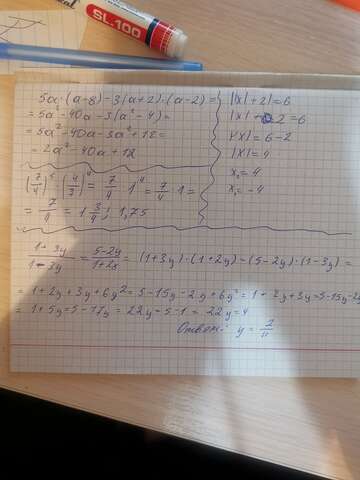 SL·100
5a·(a-8)-3(a+2)·(a-2)=
=5a²-40a-3(a²-4)=
=5a²-40a-3a²+12=
=2a²-40a+12
||x|+2|=6
|x|+2=6
|x|=6-2
|x|=4
x₁=4
x₂=-4
(7/4)⁵·(4/7)⁴=7/4·1⁴=7/4·1=
=7/4=1 3/4; 1,75
(1+3y)/(1-3y)=(5-2y)/(1+2x)=(1+3y)·(1+2y)-(5-2y)·(1-3y)=
=1+2y+3y+6y²=5-15y-2y+6y²=1+2y+3y=5-15y-2y
=1+5y=5-17y=22y=5-1=22y=4
Ответ: y=2/11